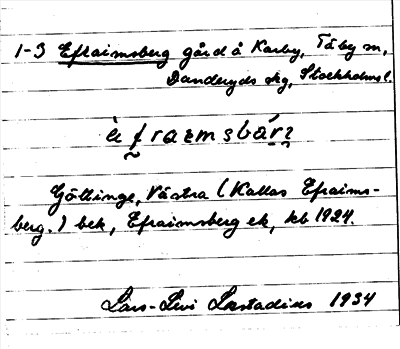 1-3 Efraimsberg gård å Karby, Täby sn,
Danderyds skg, Stockholms l.
Göltinge, Västra (Kallas Efraims-
berg.) bek, Efraimsberg ek, kb 1924.
Lars-Levi Læstadius 1934